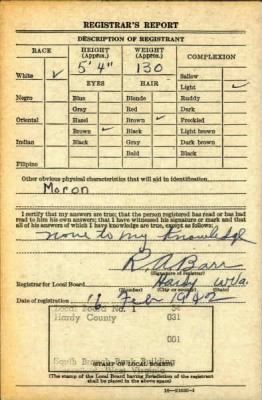 REGISTRAR'S REPORT
DESCRIPTION OF REGISTRANT
RACE HEIGHT (Approx.) WEIGHT (Approx.) COMPLEXION
5' 4" 130
White ✓ Sallow
EYES HAIR Light ✓
Negro Blue Blonde Ruddy
Gray Red Dark
Oriental Hazel Brown ✓ Freckled
Brown ✓ Black Light brown
Indian Black Gray Dark brown
Bald Black
Filipino
Other obvious physical characteristics that will aid in identification
Moron
I certify that my answers are true; that the person registered has read or has had
read to him his own answers; that I have witnessed his signature or mark and that
all of his answers of which I have knowledge are true, except as follows:
none to my Knowledge
R. A. Barr
(Signature of registrar)
Registrar for Local Board Hardy W Va.
(Number) (City or county) (State)
Date of registration 16 Feb 1942
Local Board No. 1 54
Hardy County 031
001
South Branch Bank Building
West Virginia
(STAMP OF LOCAL BOARD)
(The stamp of the Local Board having jurisdiction of the registrant
shall be placed in the above space)